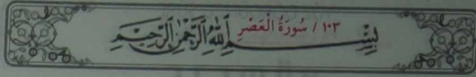 ١٠٣ / سُورَةُ الْعَصْرِ
بِسْمِ اللَّهِ الرَّحْمَٰنِ الرَّحِيمِ